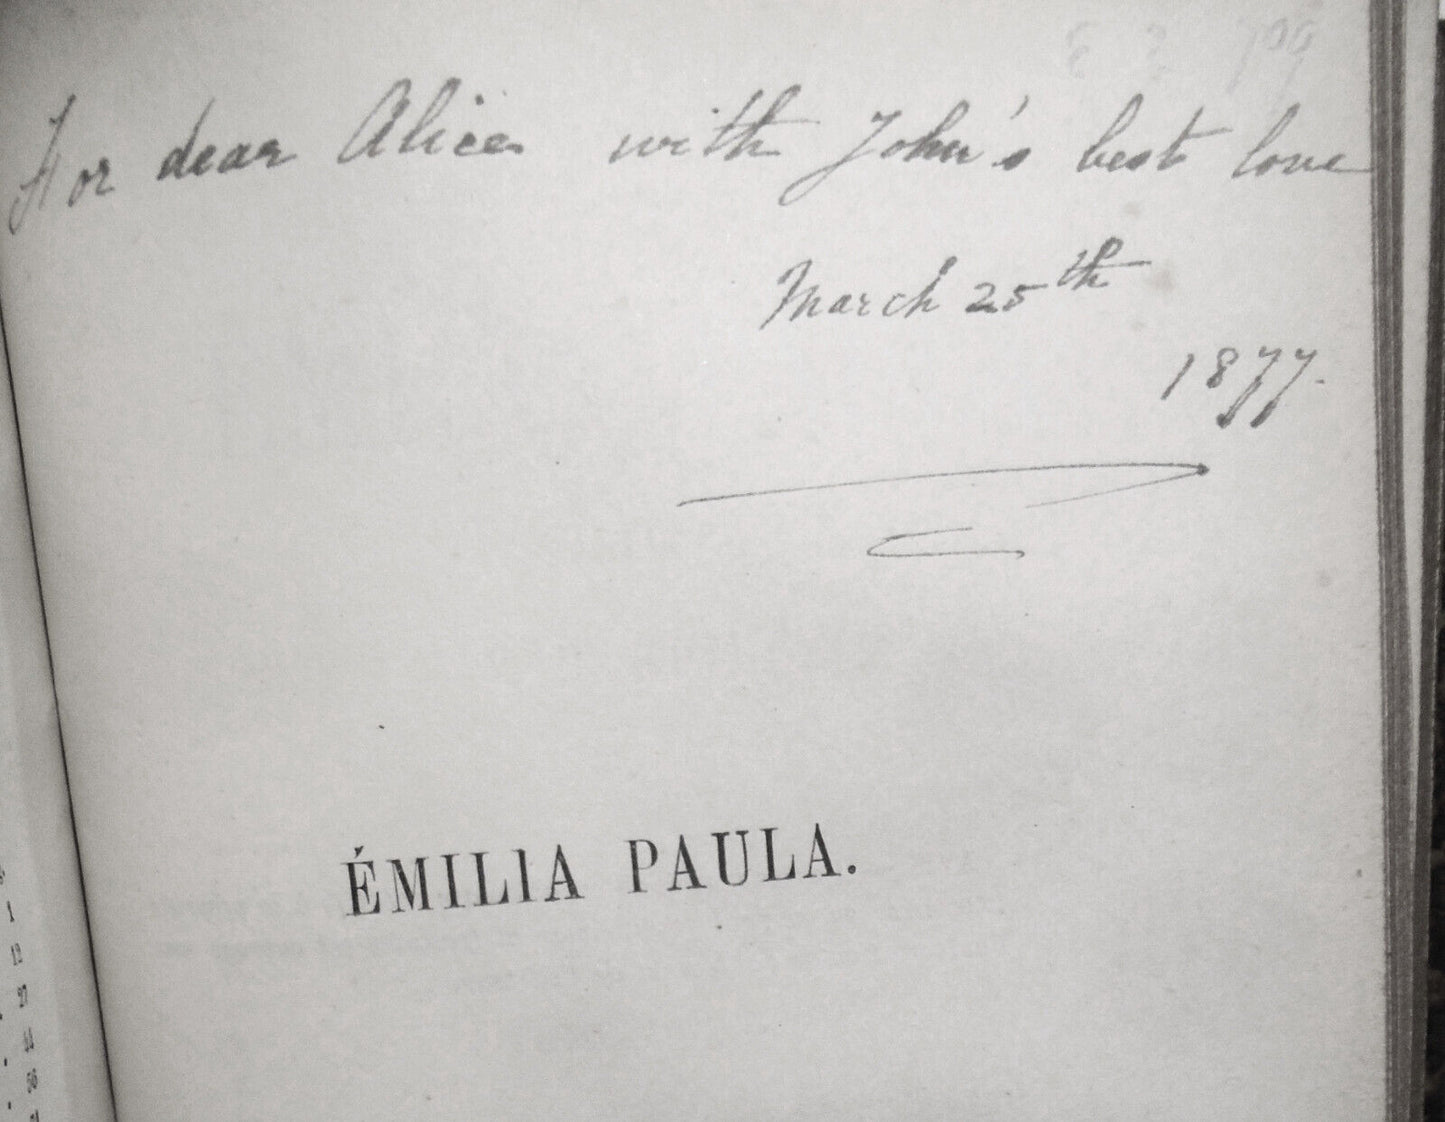 For dear Alice with John's best love
March 25th
1877.
ÉMILIA PAULA.
1
12
27
44
56